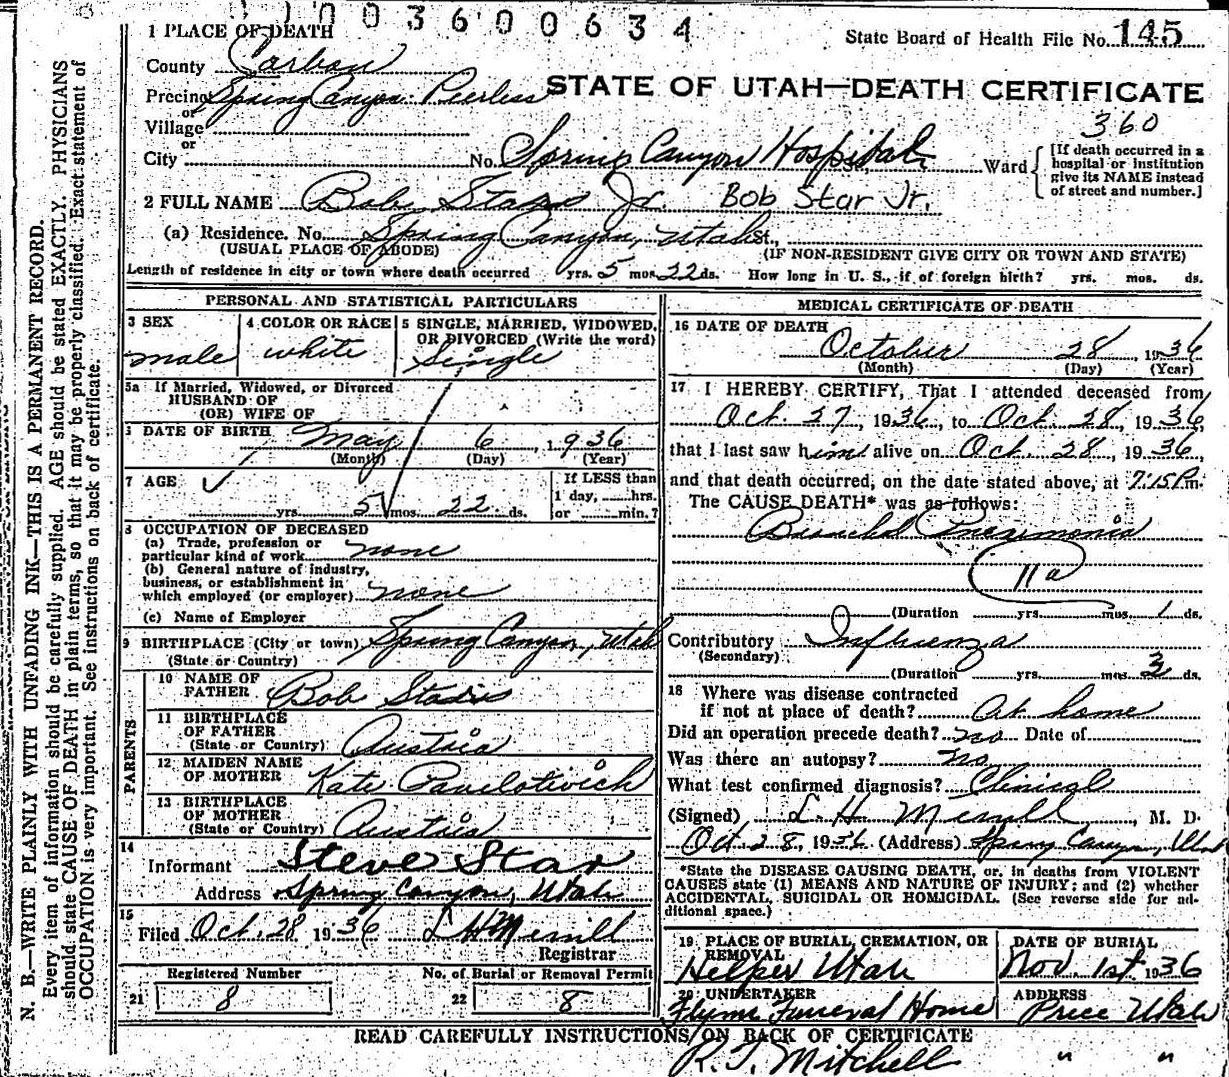 1003600634
State Board of Health File No. 145
1 PLACE OF DEATH
County Carbon
STATE OF UTAH—DEATH CERTIFICATE
Precinct Spring Canyon Peerless
or
Village
or
City
360
No. Spring Canyon Hospital St., Ward
[If death occurred in a
hospital or institution
give its NAME instead
of street and number.]
2 FULL NAME Bob Jr. Bob Star Jr.
(a) Residence. No. Spring Canyon, Utah St.,
(USUAL PLACE OF ABODE) (IF NON-RESIDENT GIVE CITY OR TOWN AND STATE)
Length of residence in city or town where death occurred yrs. 5 mos. 22 ds. How long in U. S., if of foreign birth? yrs. mos. ds.
PERSONAL AND STATISTICAL PARTICULARS
3 SEX
male
4 COLOR OR RACE
white
5 SINGLE, MARRIED, WIDOWED,
OR DIVORCED (Write the word)
Single
5a If Married, Widowed, or Divorced
HUSBAND OF
(OR) WIFE OF
DATE OF BIRTH May 6, 1936
(Month) (Day) (Year)
7 AGE
yrs. 5 mos. 22 ds.
If LESS than
1 day, hrs.
or min.?
8 OCCUPATION OF DECEASED
(a) Trade, profession or
particular kind of work none
(b) General nature of industry,
business, or establishment in
which employed (or employer) none
(c) Name of Employer
9 BIRTHPLACE (City or town) Spring Canyon, Utah
(State or Country)
PARENTS
10 NAME OF
FATHER Bob
11 BIRTHPLACE
OF FATHER
(State or Country) Austria
12 MAIDEN NAME
OF MOTHER Kate Pavelotivich
13 BIRTHPLACE
OF MOTHER
(State or Country) Austria
14
Informant Steve Star
Address Spring Canyon, Utah
15
Filed Oct. 28 1936 L H Merrill
Registrar
Registered Number
21 8
No. of Burial or Removal Permit
22 8
MEDICAL CERTIFICATE OF DEATH
16 DATE OF DEATH
October 28, 1936
(Month) (Day) (Year)
17 I HEREBY CERTIFY, That I attended deceased from
Oct. 27, 1936, to Oct. 28, 1936,
that I last saw him alive on Oct. 28, 1936
and that death occurred, on the date stated above, at 7:15 P.m.
The CAUSE DEATH* was as follows:
Bronchial Pneumonia
11a
(Duration yrs. mos. 1 ds.
Contributory Influenza
(Secondary)
(Duration yrs. mos. 3 ds.
18 Where was disease contracted
if not at place of death? At home
Did an operation precede death? no Date of
Was there an autopsy? no
What test confirmed diagnosis? Clinical
(Signed) L. H. Merrill, M. D.
Oct 28, 1936 (Address) Spring Canyon, Utah
*State the DISEASE CAUSING DEATH, or, in deaths from VIOLENT
CAUSES state (1) MEANS AND NATURE OF INJURY; and (2) whether
ACCIDENTAL, SUICIDAL OR HOMICIDAL. (See reverse side for ad-
ditional space.)
19 PLACE OF BURIAL, CREMATION, OR
REMOVAL
Helper Utah
DATE OF BURIAL
Nov. 1st 1936
20 UNDERTAKER
Flynn Funeral Home
ADDRESS
Price Utah
READ CAREFULLY INSTRUCTIONS ON BACK OF CERTIFICATE
R. T. Mitchell " "
N. B.—WRITE PLAINLY WITH UNFADING INK—THIS IS A PERMANENT RECORD.
Every item of information should be carefully supplied. AGE should be stated EXACTLY. PHYSICIANS
should state CAUSE OF DEATH in plain terms, so that it may be properly classified. Exact statement of
OCCUPATION is very important. See instructions on back of certificate.